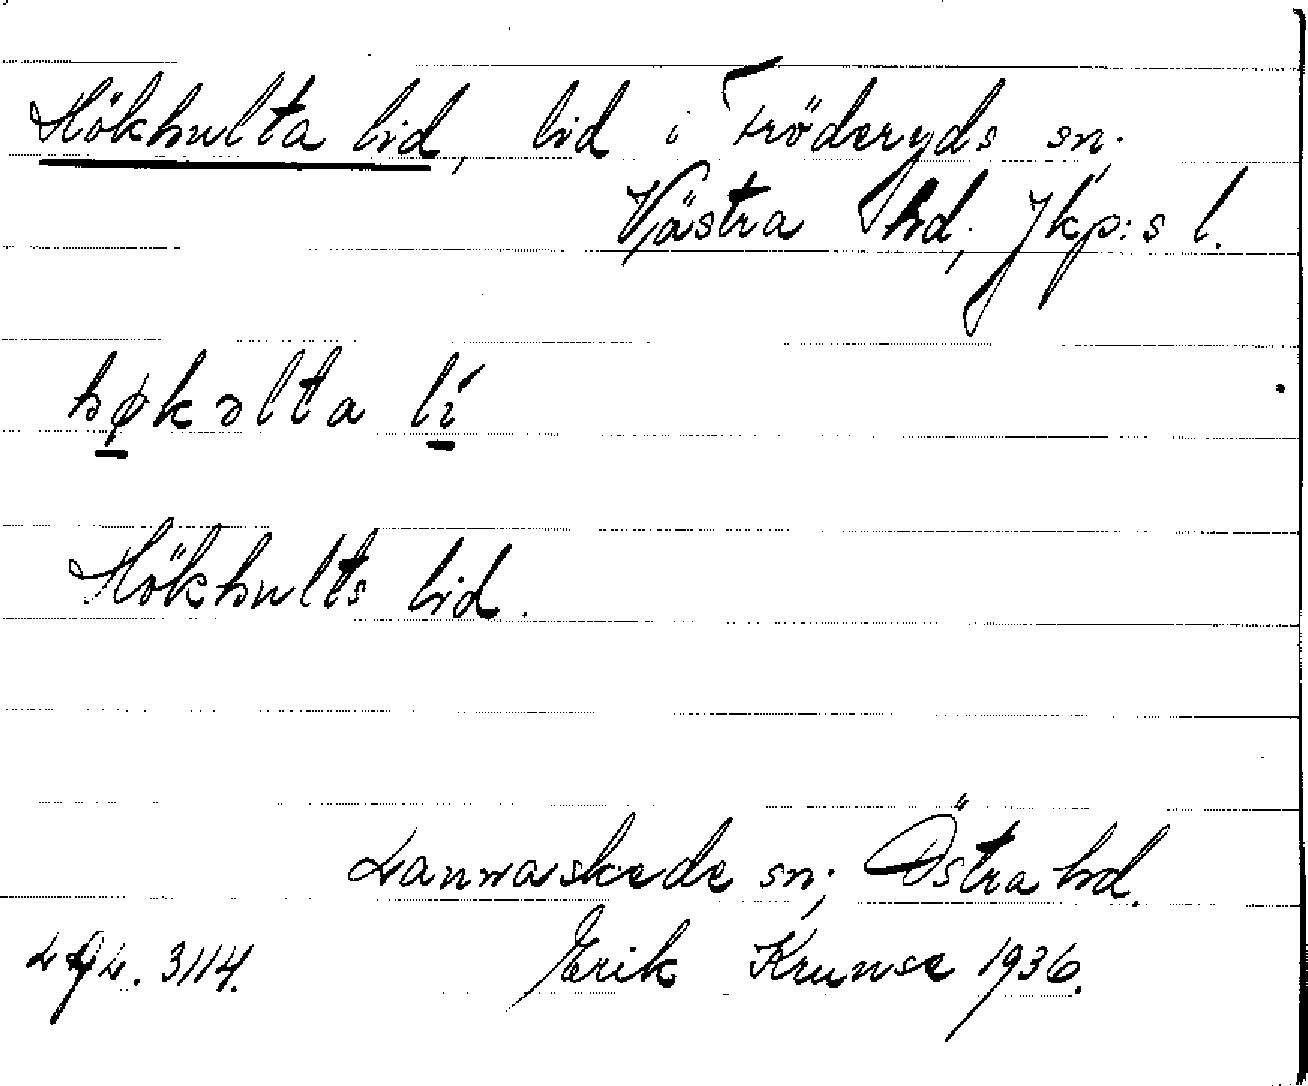 Hökhulta lid, lid i Fröderyds sn;
Västra hd, Jkp:s l.
høkəlta lí
Hökhults lid.
Lannaskede sn; Östra hd.
3114. Erik Krunse 1936.